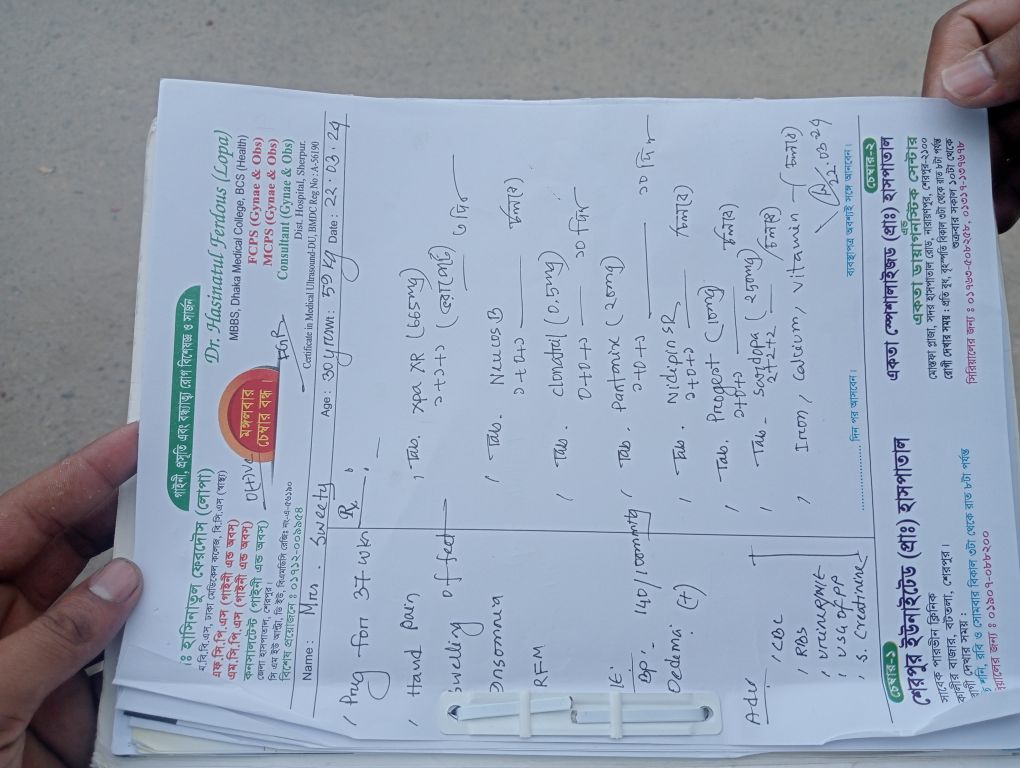 গাইনী, প্রসূতি এবং বন্ধ্যাত্ব রোগ বিশেষজ্ঞ ও সার্জন
ঃ হাসিনাতুল ফেরদৌস (লোপা)
ম.বি.বি.এস, ঢাকা মেডিকেল কলেজ, বি.সি.এস (স্বাস্থ্য)
এফ.সি.পি.এস (গাইনী এন্ড অবস্)
এম.সি.পি.এস (গাইনী এন্ড অবস্)
কনসালটেন্ট (গাইনী এন্ড অবস্)
জেলা হাসপাতাল, শেরপুর।
সি এম ইউ আল্ট্রা, ডি ইউ, বিএমডিসি রেজিঃ নং-এ-৫৬১৯০
বিশেষ প্রয়োজনে : ০১৭১২-০০৯৯৫৪
O(+)ve
মঙ্গলবার
চেম্বার বন্ধ।
Dr. Hasinatul Ferdous (Lopa)
MBBS, Dhaka Medical College, BCS (Health)
FCPS (Gynae & Obs)
MCPS (Gynae & Obs)
Consultant (Gynae & Obs)
Dist. Hospital, Sherpur.
Certificate in Medical Ultrasound-DU, BMDC Reg No : A-56190
Name : Mrs. Sweety Age : 30 yrs Wt : 59 kg Date : 22.03.24
Preg for 37 wks
Hand Pain
Swelling of feet
Insomnia
RFM
BP: 140/100mmHg
Oedema (+)
Adv
CBC
RBS
Urine R/M/E
USG of PP
S. Creatinine
Rx
Tab. Xpa XR (665mg)
১+১+১ (ভরাপেটে) ৩ দিন
Tab. Neucos B
১+০+১ চলবে)
Tab. Clonatril (0.5mg)
০+০+১ ১০ দিন
Tab. Pantonix (20mg)
১+০+১ ১০ দিন
Tab. Nidipin SR
১+০+১ চলবে)
Tab. Progest (10mg)
১+০+১ চলবে)
Tab. Sardopa (250mg)
2+2+2 চলবে)
Iron, Calcium, Vitamin - চলবে)
22.03.24
.................... দিন পর আসবেন।
ব্যবস্থাপত্র অবশ্যই সঙ্গে আনবেন।
চেম্বার-১
শেরপুর ইউনাইটেড (প্রাঃ) হাসপাতাল
সাবেক পারভীন ক্লিনিক
কালীর বাজার, বটতলা, শেরপুর।
রোগী দেখার সময় :
শনি, রবি ও সোমবার বিকাল ৩টা থেকে রাত ৮টা পর্যন্ত
রিয়ালের জন্য : ০১৯০৭-০৮৮২০০
চেম্বার-২
একতা স্পেশালাইজড (প্রাঃ) হাসপাতাল
এন্ড
একতা ডায়াগনস্টিক সেন্টার
মোস্তফা প্লাজা, সদর হাসপাতাল রোড, নারায়ণপুর, শেরপুর-২১০০
রোগী দেখার সময় : প্রতি বুধ, বৃহস্পতি বিকাল ৩টা থেকে রাত ৮টা পর্যন্ত
শুক্রবার সকাল ১০টা থেকে
সিরিয়ালের জন্য : ০১৭৬৩-৫০৮২৫৮, ০১৩১৭-১৩৭৬৭৮